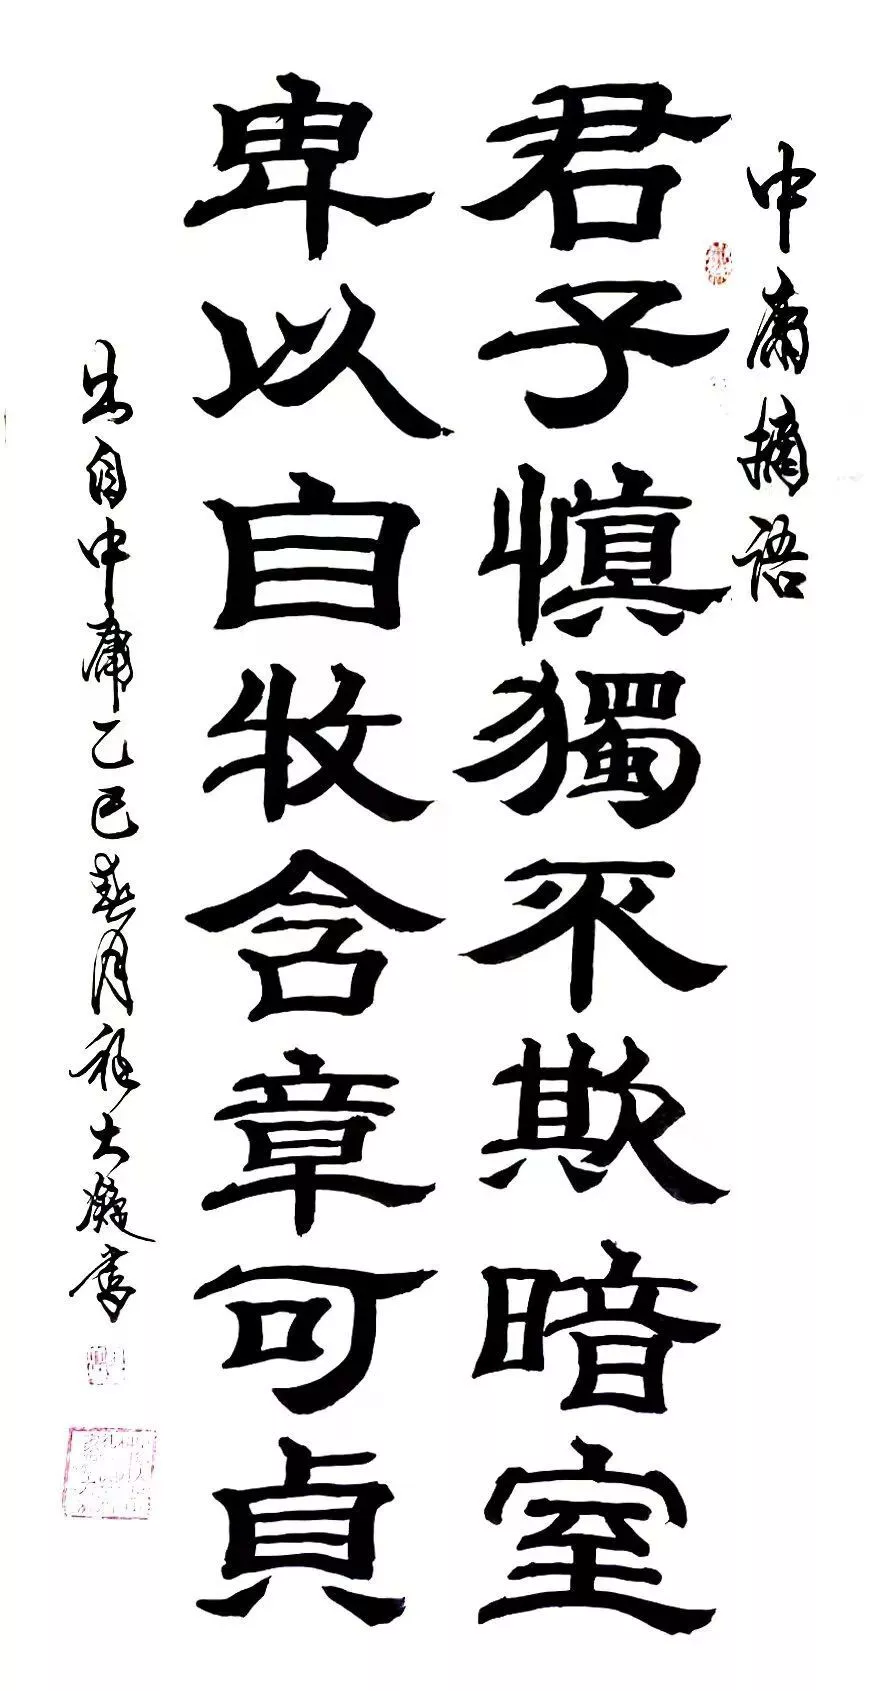 中庸摘语
君子慎獨不欺暗室
卑以自牧含章可貞
出自中庸乙巳春月程大凝書